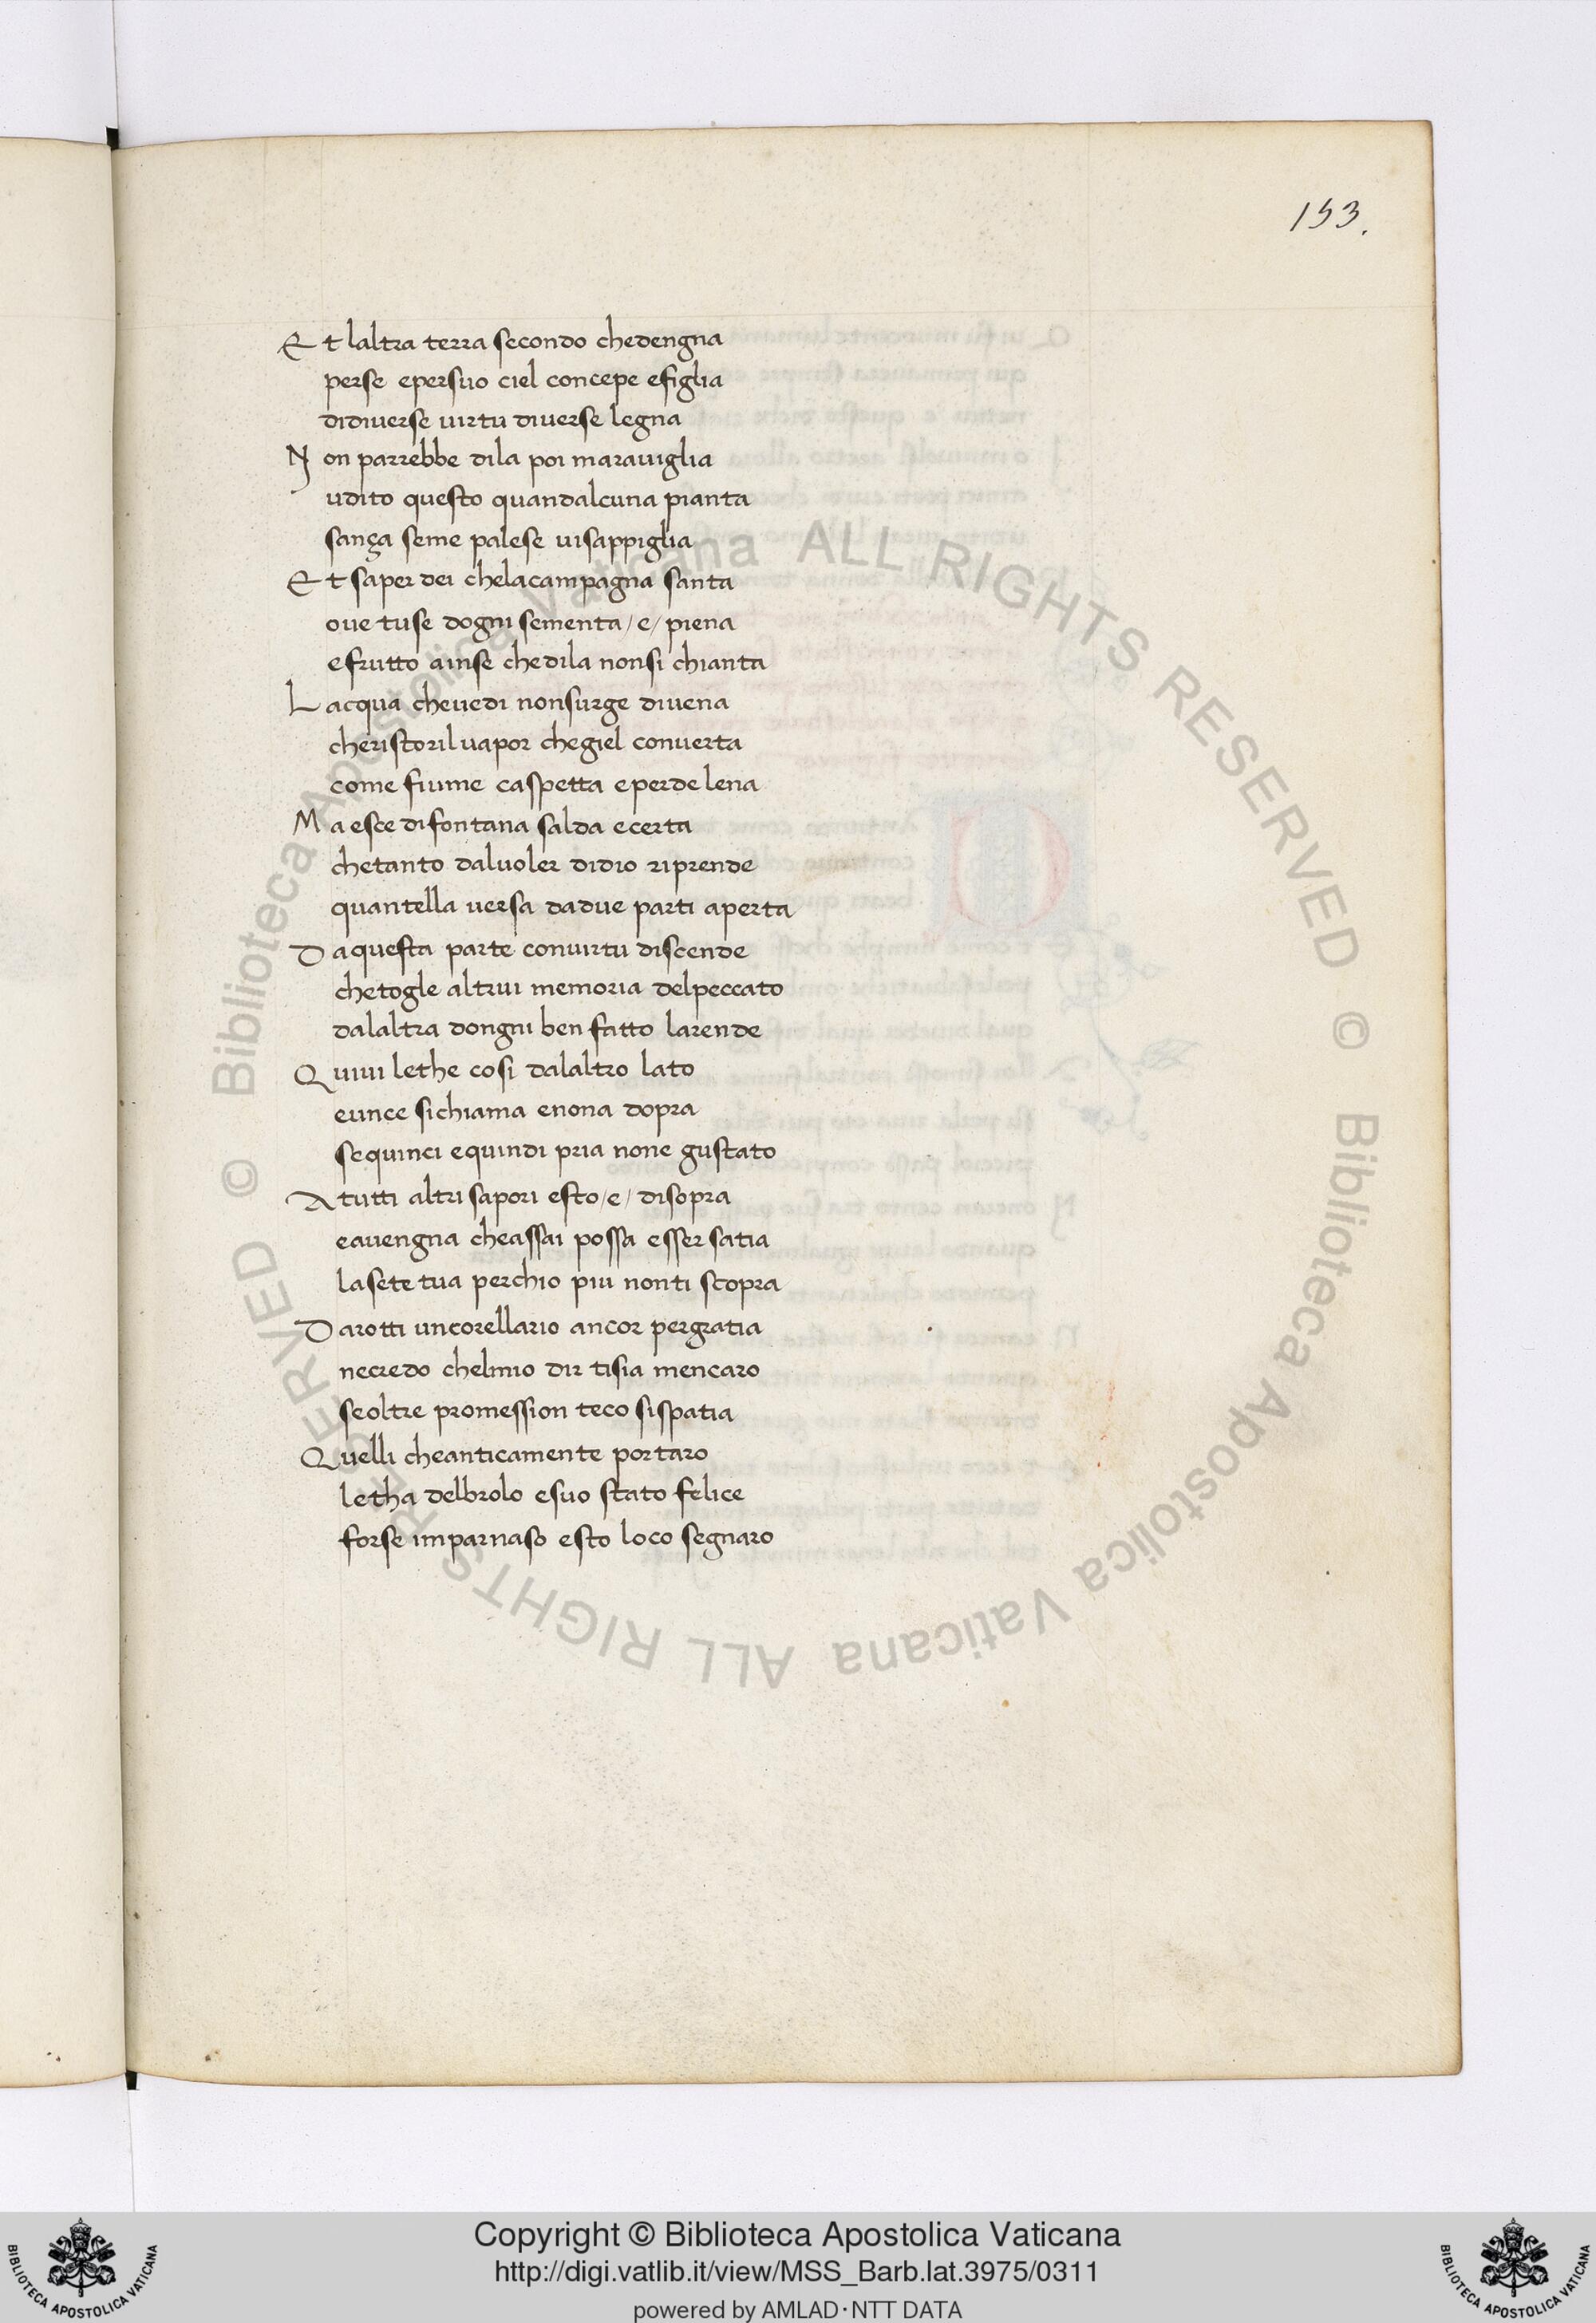 153.
Et laltra terra secondo chedengna
perse epersuo ciel concepe efiglia
didiuerse uirtu diuerse legna
Non parrebbe dila poi marauiglia
udito questo quandalcuna pianta
sança seme palese uisappiglia
Et saper dei chelacampagna santa
oue tuse dogni sementa/e/ piena
efrutto ainse chedila nonsi chianta
Lacqua cheuedi nonsurge diuena
cheristoriluapor chegiel conuerta
come fiume caspetta eperde lena
Ma esce difontana salda ecerta
chetanto daluoler didio riprende
quantella uersa dadue parti aperta
Daquesta parte conuirtu discende
chetogle altrui memoria delpeccato
dalaltra dongni ben fatto larende
Quiui lethe cosi dalaltro lato
eunce sichiama enona dopra
sequinci equindi pria none gustato
Atutti altri sapori esto/e/ disopra
eauengna cheassai possa esser satia
lasete tua perchio piu nonti scopra
Darotti uncorellario ancor pergratia
necredo chelmio dir tisia mencaro
seoltre promession teco sispatia
Quelli cheanticamente portaro
letha delbrolo esuo stato felice
forse imparnaso esto loco segnaro
© Biblioteca Apostolica Vaticana ALL RIGHTS RESERVED
© Biblioteca Apostolica Vaticana ALL RIGHTS RESERVED
Copyright © Biblioteca Apostolica Vaticana
http://digi.vatlib.it/view/MSS_Barb.lat.3975/0311
powered by AMLAD·NTT DATA
BIBLIOTECA APOSTOLICA VATICANA
BIBLIOTECA APOSTOLICA VATICANA